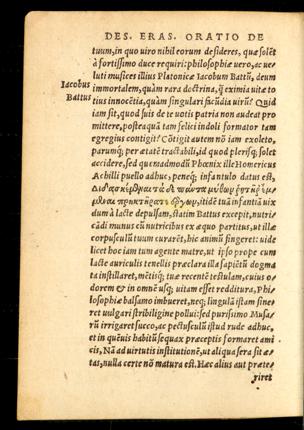 DES. ERAS. ORATIO DE
tuum, in quo uiro nihil eorum desideres, quæ solēt
à fortissimo duce requiri: philosophiæ uero, ac ue-
luti musices illius Platonicæ Iacobum Battū, deum
Iacobus
Battus
immortalem, quàm rara doctrina, q̃ eximia uitæ to
tius innocētia, quàm singulari facūdia uirū? Quid
iam sit, quod suis de te uotis patria non audeat pro
mittere, posteaquā tam felici indoli formator tam
egregius contigit? Cōtigit autem nō iam exoleto,
parumq́; per ætatē tractabili, id quod plerisq́; solet
accidere, sed quemadmodū Phœnix ille Homericus
Achilli puello adhuc, peneq́; infantulo datus est,
itidē tuā infantiā uix
dum à lacte depulsam, statim Battus excepit, nutri-
cādi munus cū nutricibus ex æquo partitus, ut illæ
corpusculū tuum curarēt, hic animū fingeret: uide
licet hoc iam tum agente matre, ut ipso prope cum
lacte auriculis tenellis præclara illa sapiētū dogma
ta instillaret, mētisq́; tuæ recentē testulam, cuius o-
dorem & in omnē usq́; uitam esset redditura, Phi-
losophiæ balsamo imbueret, neq́; lingulā istam sine-
ret uulgari stribiligine pollui: sed purissimo Musa-
rū irrigaret succo, ac pectusculū istud rude adhuc,
et in quēuis habitū sequax præceptis formaret ami
cis, Nā ad uirtutis institutionē, ut aliqua sera sit æ-
tas, nulla certe nō matura est. Hæc alius aut præte-
riret